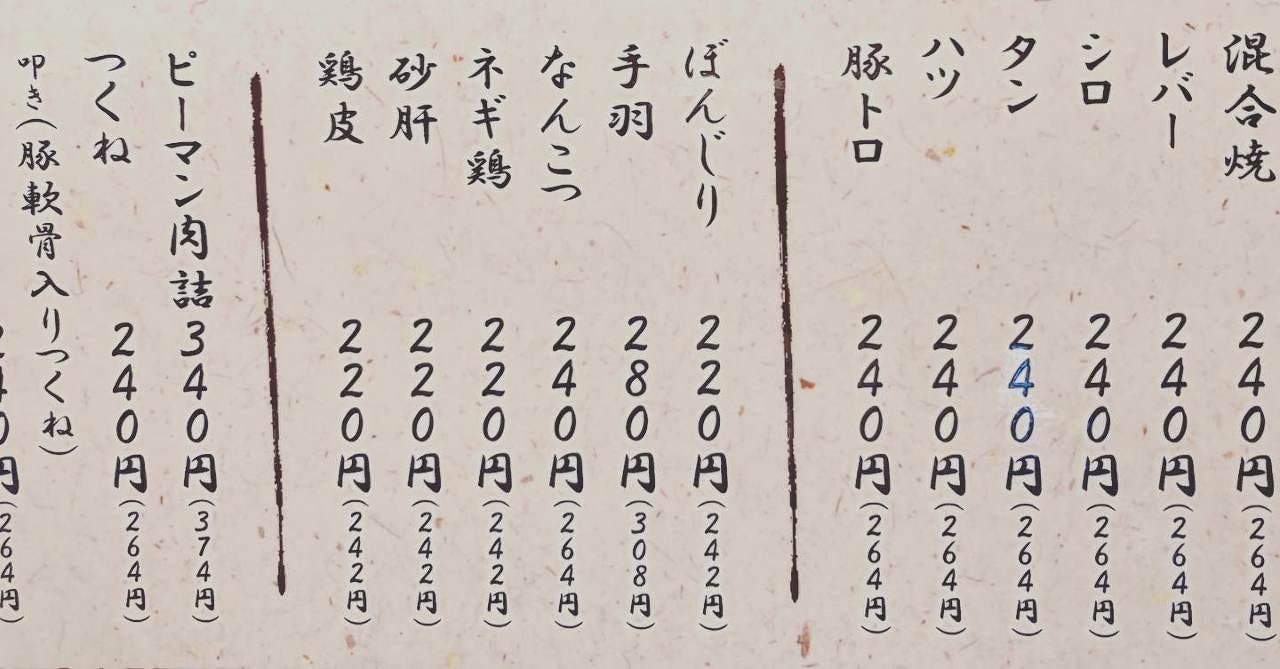 混合焼 240円(264円)
レバー 240円(264円)
シロ 240円(264円)
タン 240円(264円)
ハツ 240円(264円)
豚トロ 240円(264円)
ぼんじり 220円(242円)
手羽 280円(308円)
なんこつ 240円(264円)
ネギ鶏 220円(242円)
砂肝 220円(242円)
鶏皮 220円(242円)
ピーマン肉詰 340円(374円)
つくね 240円(264円)
叩き(豚軟骨入りつくね) 240円(264円)